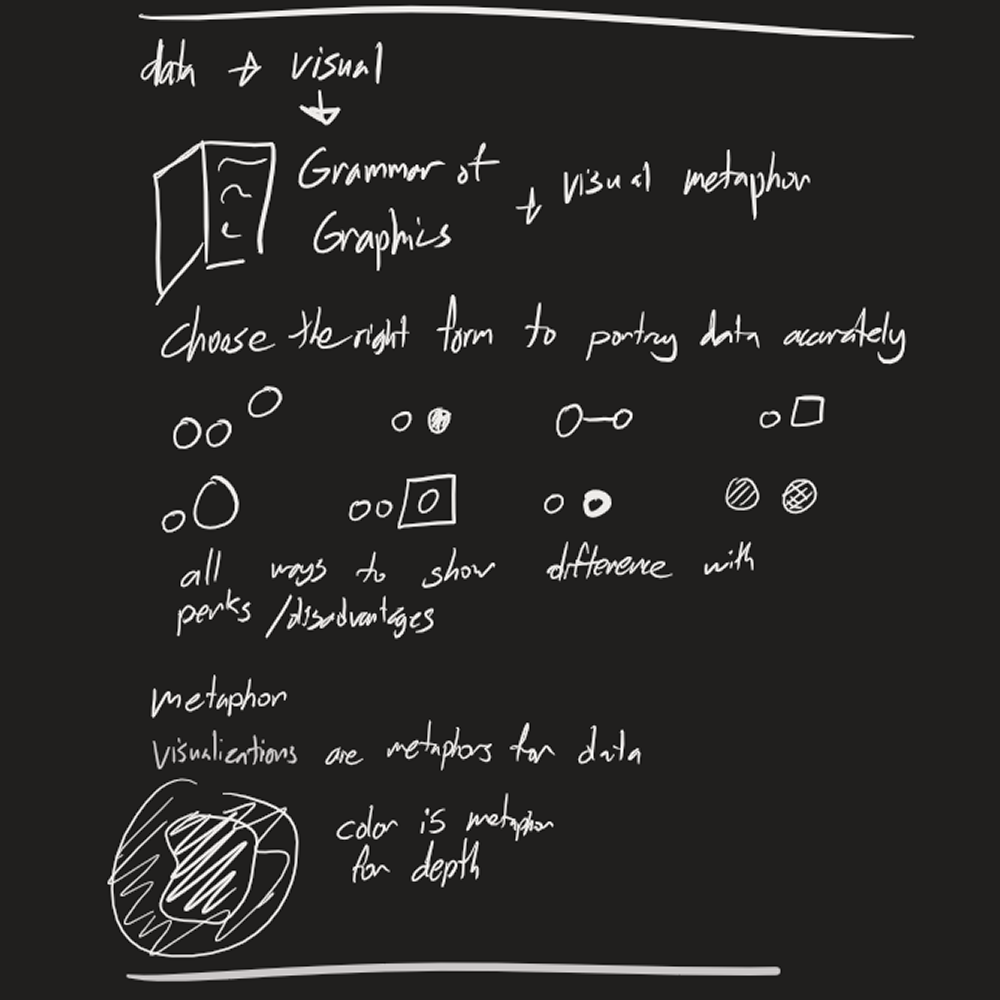 data → visual
↓
Grammar of + visual metaphor
Graphics
Choose the right form to portray data accurately
all ways to show difference with
perks / disadvantages
metaphor
visualizations are metaphors for data
color is metaphor
for depth